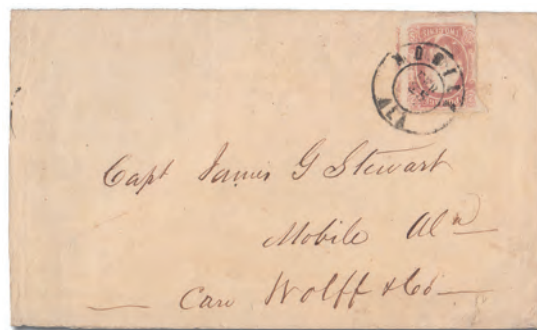 MOBILE
ALA
Capt James G Stewart
Mobile Ala
Care Wolff & Co